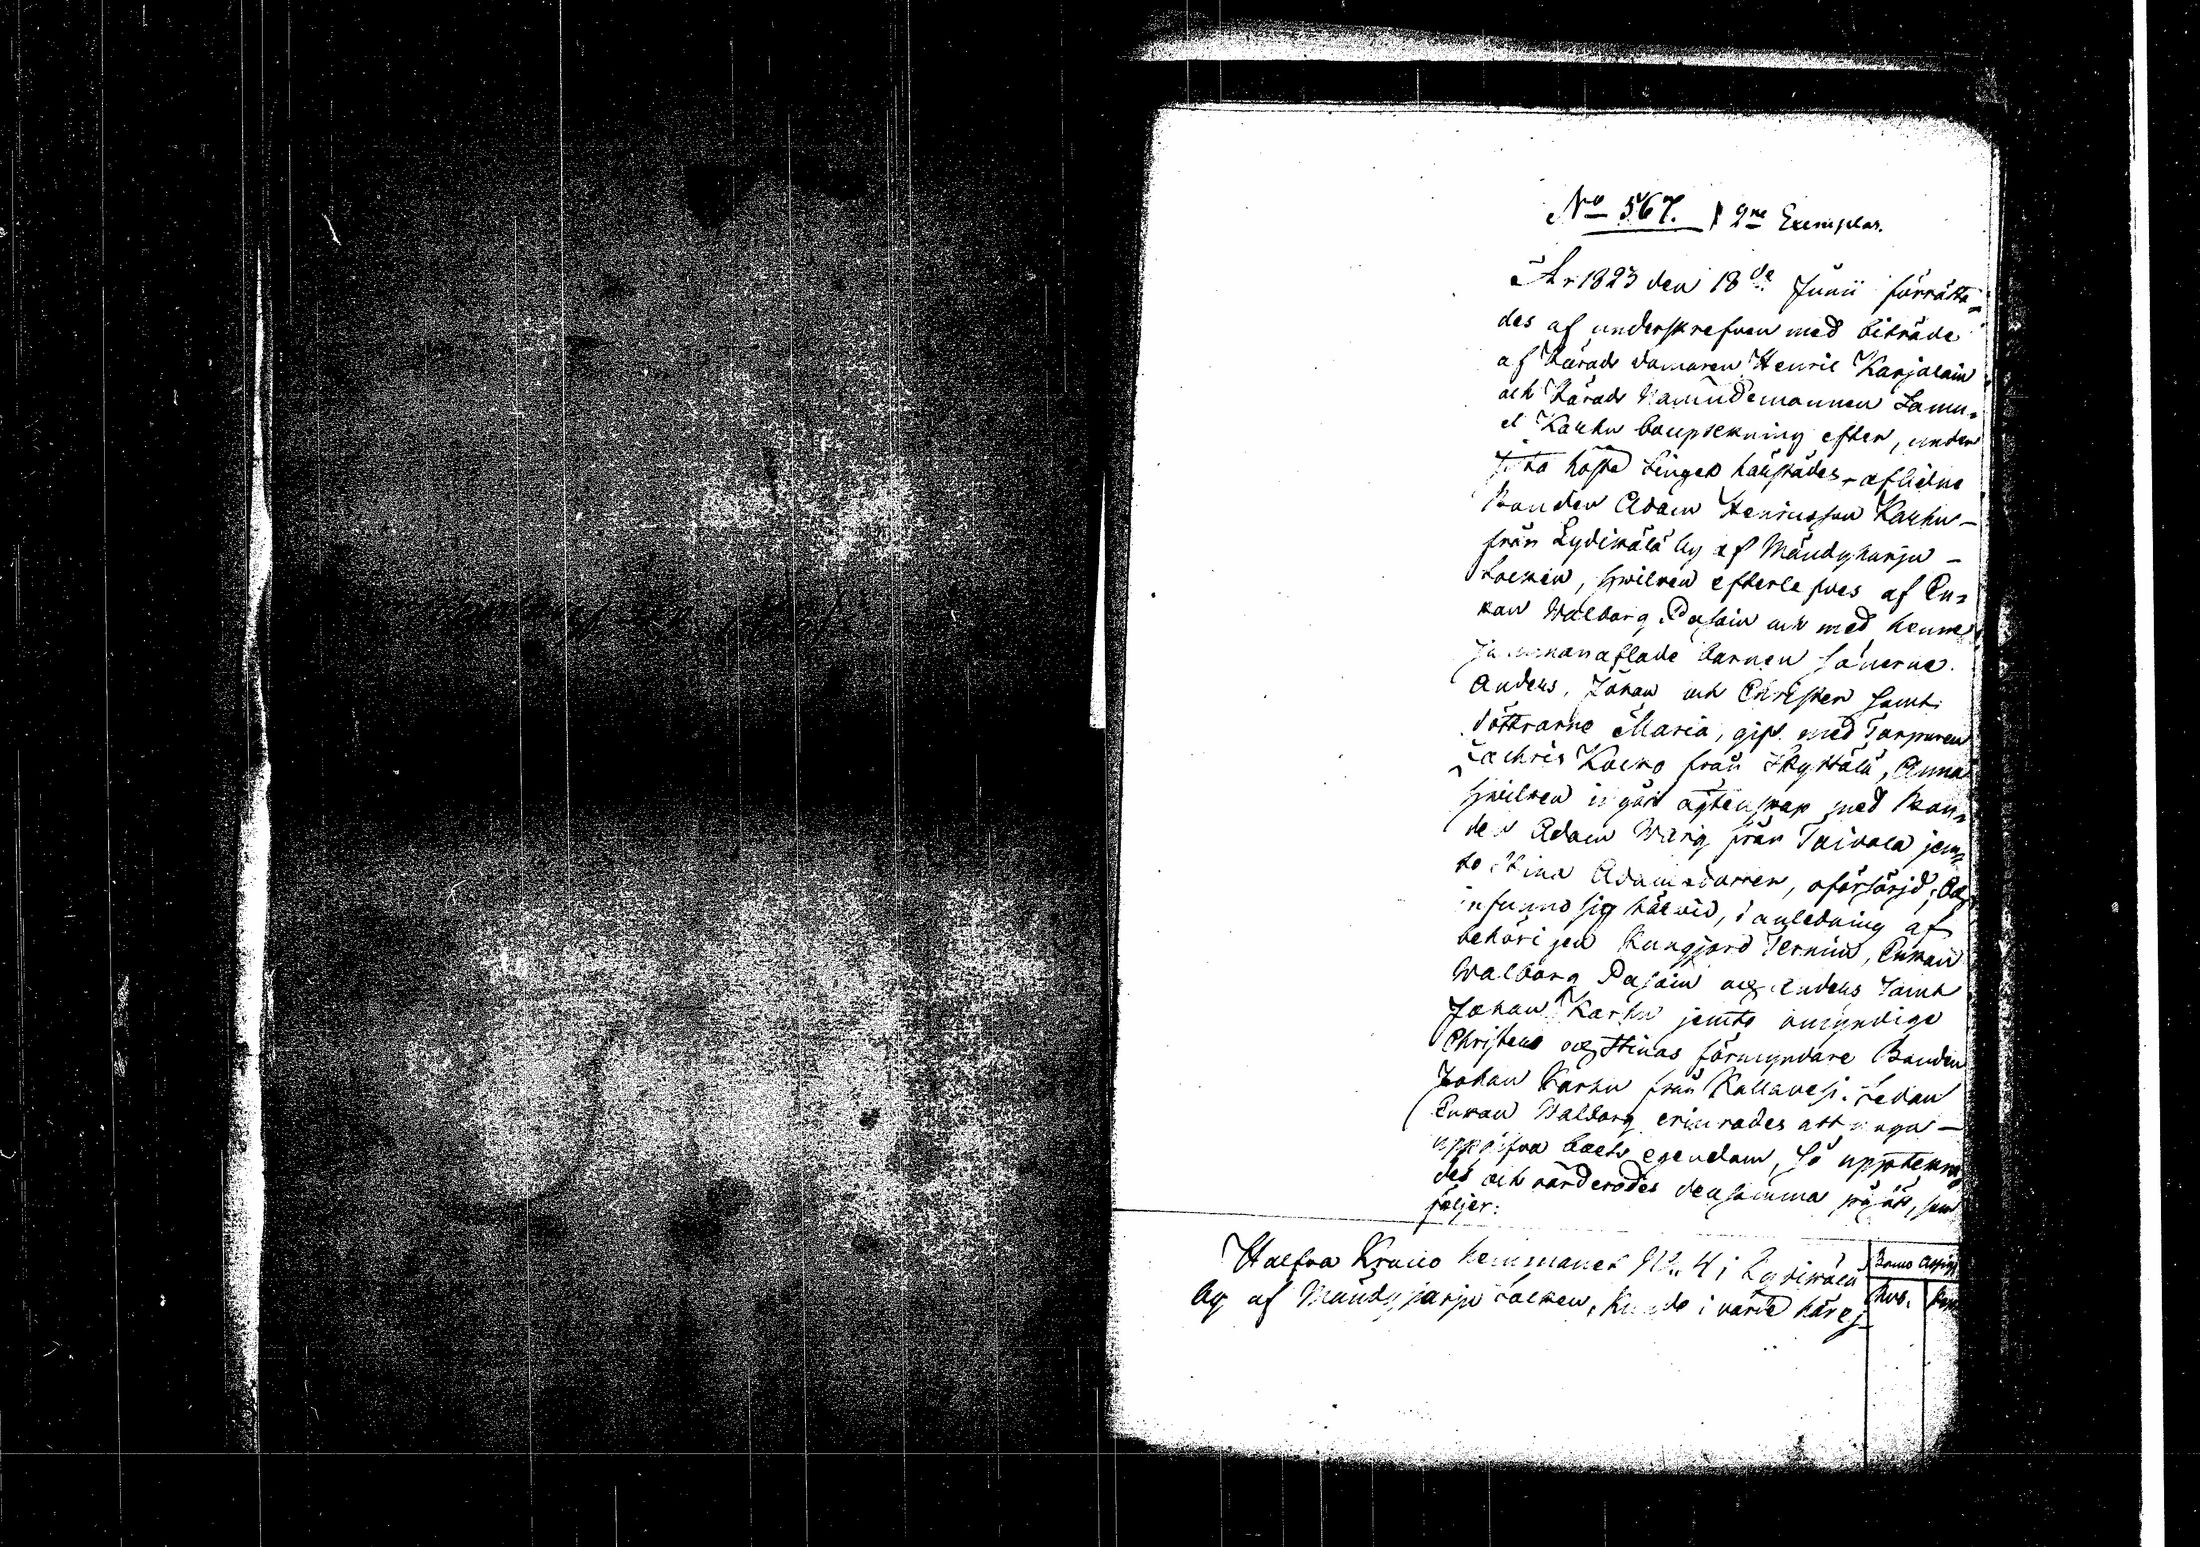 No 567. / 2ne Exemplar.
År 1823 den 18de Junii förrätta-
des af underskrefven med biträde
af Härads domaren Henric Karjalain
och Härads Nämndemannen Samu-
el Karhu bouptekning efter, under
sista höste tinget aflidne
Bonden Adam Henricsson Karhu
från Lydikälä by af Mändyharju
Socken, hvilken efterlefves af En-
kan Walborg Pasain och med henne
sammanaflade barnen sönerne
Anders, Johan och Christer samt
döttrarne Maria, gift med Torparen
Zachris Kocko från Skyttälä, Anna
hvilken ingått ägtenskap med Bon-
den Adam Warig från Taivala jem-
te Stina Adamsdotter, oförsörjd; Och
infunno sig härvid, i anledning af
behörigen kungjord Termin, Enkan
Walborg Pasain och Anders samt
Johan Karhu jemte omyndige
Christers och Stinas förmyndare Bonden
Johan Karhu från Kallavesi. Sedan
Enkan Walborg erinrades att noga
uppgifva boets egendom, så upptekna-
des och värderades densamma på sätt, som
följer:
Halfva Krono hemmanet No 4 i Lydikälä
by af Mändyharju Socken, kunde i värde här ej
Banco Assign
Rub. Kop.